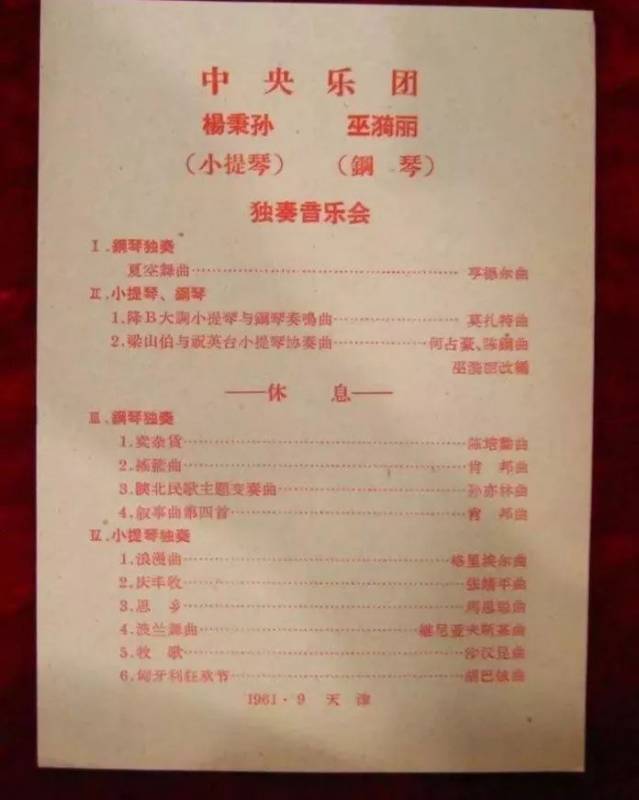 中央乐团
楊秉孙 巫漪丽
（小提琴） （鋼 琴）
独奏音乐会
Ⅰ.鋼琴独奏
夏空舞曲……亨德尔曲
Ⅱ.小提琴、鋼琴
1.降B大調小提琴与鋼琴奏鳴曲……莫扎特曲
2.梁山伯与祝英台小提琴协奏曲……何占豪、陈鋼曲
巫漪丽改編
——休 息——
Ⅲ.鋼琴独奏
1.卖杂貨……陈培勳曲
2.摇籃曲……肖 邦曲
3.陝北民歌主題变奏曲……孙亦林曲
4.叙事曲第四首……肖 邦曲
Ⅳ.小提琴独奏
1.浪漫曲……格里埃尔曲
2.庆丰收……张靖平曲
3.思 乡……馬思聪曲
4.波兰舞曲……維尼亚夫斯基曲
5.牧 歌……沙汉昆曲
6.匈牙利狂欢节……胡巴依曲
1961·9 天 津